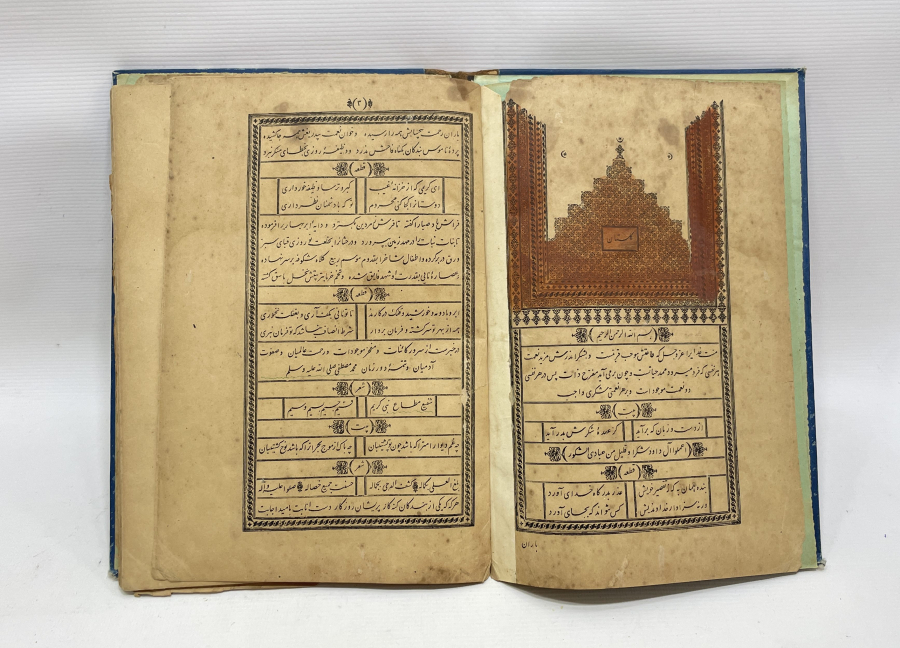 گلستان
بسم الله الرحمن الرحیم
منت خدایرا عزوجل که طاعتش موجب قربتست و بشکر اندرش مزید نعمت
هر نفسی که فرو میرود ممد حیاتست و چون بر می آید مفرح ذات پس در هر نفسی
دو نعمت موجودات و بر هر نعمتی شکری واجب
بیت
از دست و زبان که برآید کز عهدهٔ شکرش بدر آید
اعملوا آل داود شکرا و قلیل من عبادی الشکور
قطعه
بنده همان به که ز تقصیر خویش عذر بدرگاه خدای آورد
ورنه سزاوار خداوندیش کس نتواند که بجای آورد
باران
(۳)
باران رحمت بیحسابش همه را رسیده و خوان نعمت بیدریغش همه جا کشیده
پردهٔ ناموس بندگان بگناه فاحش ندرد و وظیفهٔ روزی بخطای منکر نبرد
قطعه
ای کریمی که از خزانهٔ غیب گبر و ترسا وظیفه خور داری
دوستانرا کجا کنی محروم تو که با دشمنان نظر داری
فراش باد صبا را گفته تا فرش زمردین بگسترد و دایهٔ ابر بهار را فرموده
تا بنات نبات را در مهد زمین بپرورد و درختانرا بخلعت نوروزی قبای سبز
ورق در بر کرده و اطفال شاخ را بقدوم موسم ربیع کلاه شکوفه بر سر نهاده
عصارهٔ نایی بقدرت او شهد فایق شده و تخم خرما بتربیتش نخل باسق گشته
قطعه
ابر و باد و مه و خورشید و فلک در کارند تا تو نانی بکف آری و بغفلت نخوری
همه از بهر تو سرگشته و فرمان بردار شرط انصاف نباشد که تو فرمان نبری
در خبرست از سرور کائنات و مفخر موجودات و رحمت عالمیان و صفوت
آدمیان و تتمهٔ دور زمان محمد مصطفی صلی الله علیه وسلم
شعر
شفیع مطاع نبی کریم قسیم جسیم بسیم وسیم
بیت
چه غم دیوار امت را که باشد چون تو پشتیبان چه باک از موج بحر آنرا که باشد نوح کشتیبان
شعر
بلغ العلی بکماله کشف الدجی بجماله حسنت جمیع خصاله صلوا علیه و آله
هرگه که یکی از بندگان گنهکار پریشان روزگار دست انابت بامید اجابت